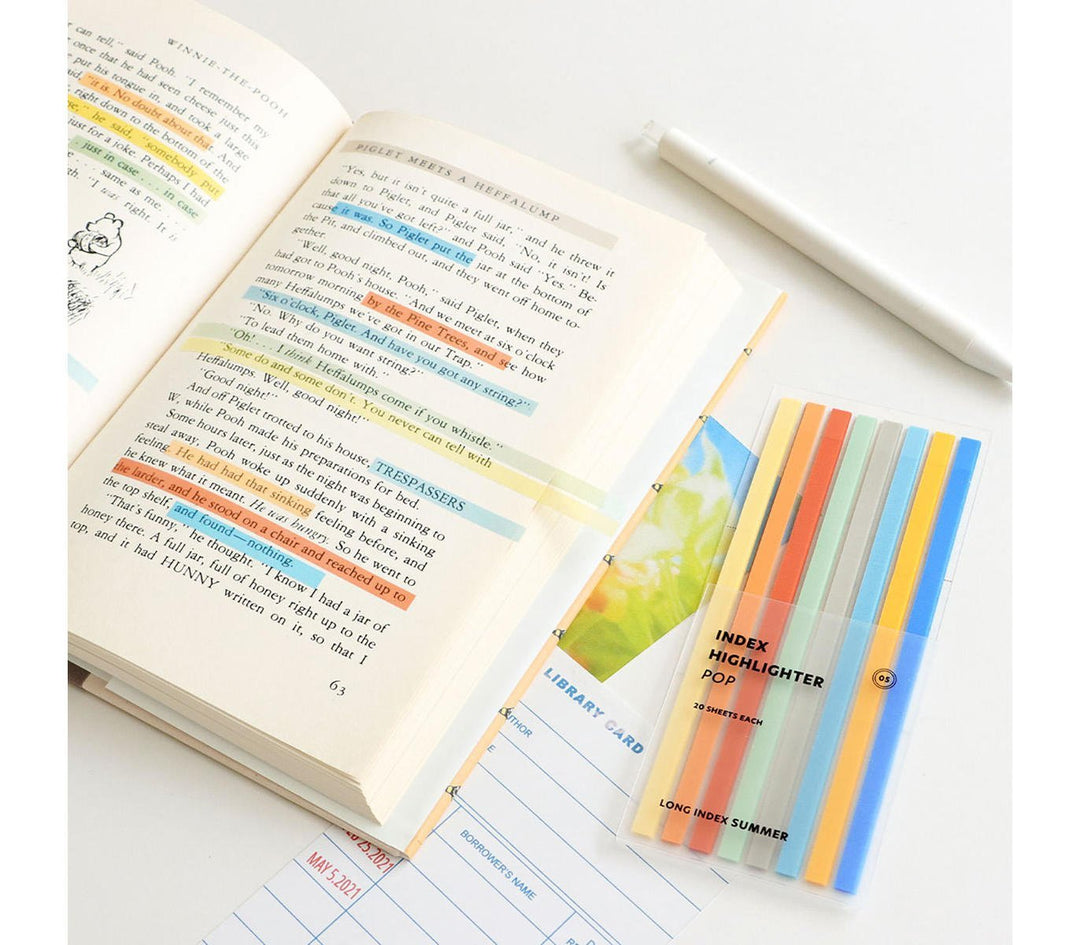 WINNIE-THE-POOH
can tell," said Pooh. "I remember my
once that he had seen cheese just this
put his tongue in, and took a large
"it is. No doubt about that. And
right down to the bottom of the
he said, "somebody put
just for a joke. Perhaps I had
just in case . . . in case
. . . same as me. . . .
"I was right. It is
PIGLET MEETS A HEFFALUMP
"Yes, but it isn't quite a full jar," and he threw it
down to Piglet, and Piglet said, "No, it isn't! Is
that all you've got left?" and Pooh said "Yes." Be-
cause it was. So Piglet put the jar at the bottom of
the Pit, and climbed out, and they went off home to-
gether.
"Well, good night, Pooh," said Piglet, when they
had got to Pooh's house. "And we meet at six o'clock
tomorrow morning by the Pine Trees, and see how
many Heffalumps we've got in our Trap."
"Six o'clock, Piglet. And have you got any string?"
"No. Why do you want string?"
"To lead them home with."
"Oh! . . . I think Heffalumps come if you whistle."
"Some do and some don't. You never can tell with
Heffalumps. Well, good night!"
"Good night!"
And off Piglet trotted to his house, TRESPASSERS
W, while Pooh made his preparations for bed.
Some hours later, just as the night was beginning to
steal away, Pooh woke up suddenly with a sinking
feeling. He had had that sinking feeling before, and
he knew what it meant. He was hungry. So he went to
the larder, and he stood on a chair and reached up to
the top shelf, and found—nothing.
"That's funny," he thought. "I know I had a jar of
honey there. A full jar, full of honey right up to the
top, and it had HUNNY written on it, so that I
63
INDEX
HIGHLIGHTER
POP
05
20 SHEETS EACH
LONG INDEX SUMMER
LIBRARY CARD
BORROWER'S NAME
25.2021
MAY 5.2021